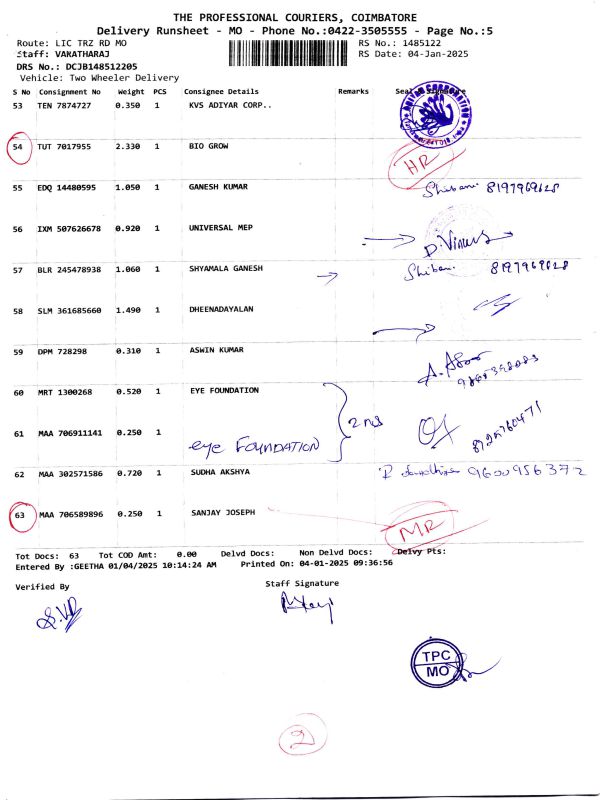 THE PROFESSIONAL COURIERS, COIMBATORE
Delivery Runsheet - MO - Phone No.:0422-3505555 - Page No.:5
Route: LIC TRZ RD MO RS No.: 1485122
Staff: VAKATHARAJ RS Date: 04-Jan-2025
DRS No.: DCJB148512205
Vehicle: Two Wheeler Delivery
S No Consignment No Weight PCS Consignee Details Remarks Seal Signature
53 TEN 7874727 0.350 1 KVS ADIYAR CORP..
54 TUT 7017955 2.330 1 BIO GROW HR
55 EDQ 14480595 1.050 1 GANESH KUMAR Shibani 8197969628
56 IXM 507626678 0.920 1 UNIVERSAL MEP
57 BLR 245478938 1.060 1 SHYAMALA GANESH Shibani 8197969628
58 SLM 361685660 1.490 1 DHEENADAYALAN
59 DPM 728298 0.310 1 ASWIN KUMAR
60 MRT 1300268 0.520 1 EYE FOUNDATION
61 MAA 706911141 0.250 1 eye FOUNDATION
62 MAA 302571586 0.720 1 SUDHA AKSHYA 9600956372
63 MAA 706589896 0.250 1 SANJAY JOSEPH MR
Tot Docs: 63 Tot COD Amt: 0.00 Delvd Docs: Non Delvd Docs: Delvy Pts:
Entered By :GEETHA 01/04/2025 10:14:24 AM Printed On: 04-01-2025 09:36:56
Verified By Staff Signature
TPC
MO
2